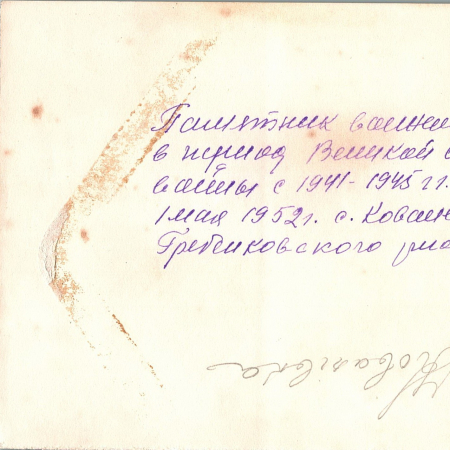 Памятник воинам
в период Великой о
войны с 1941-1945 гг.
1 мая 1952 г. с. Кован
Гребенковского
Ковалевка